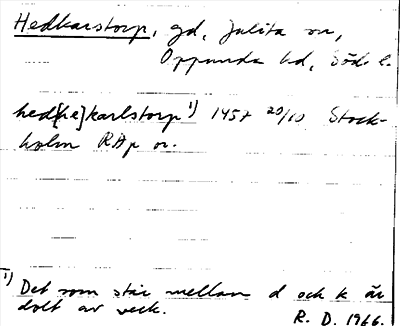 Hedkarstorp, gd, Julita sn,
Oppunda hd, Söd. l.
hed[he]karlstorp 1) 1457 20/10 Stock-
holm RAp or.
1) Det som står mellan d och k är
dolt av veck.
R. D. 1966.